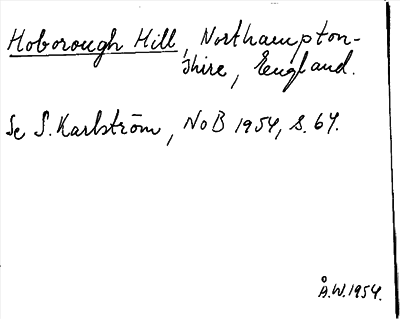 Hoborough Hill, Northampton-
shire, England.
Se S. Karlström, NoB 1954, s. 64.
Å.W. 1954.